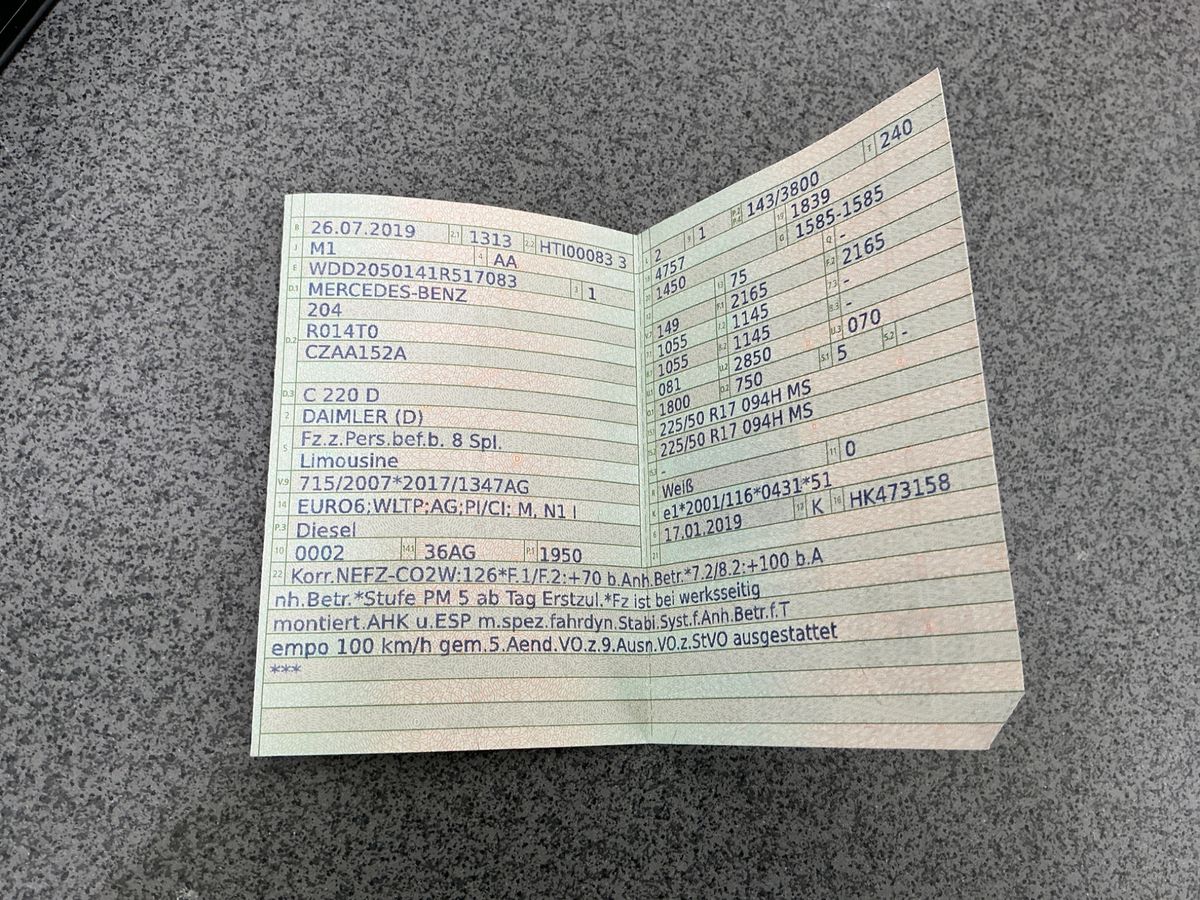 B 26.07.2019 2.1 1313 2.2 HTI00083 3
J M1 4 AA
E WDD2050141R517083 3 1
D.1 MERCEDES-BENZ
204
D.2 R014T0
CZAA152A
D.3 C 220 D
2 DAIMLER (D)
5 Fz.z.Pers.bef.b. 8 Spl.
Limousine
V.9 715/2007*2017/1347AG
14 EURO6;WLTP;AG;PI/CI; M, N1 I
P.3 Diesel
10 0002 14.1 36AG P.1 1950
L 2 9 1 P.2 P.4 143/3800 T 240
18 4757 19 1839
20 1450 G 1585-1585
12 - 13 75 Q -
V.7 149 F.1 2165 F.2 2165
7.1 1055 7.2 1145 7.3 -
8.1 1055 8.2 1145 8.3 -
U.1 081 U.2 2850 U.3 070
O.1 1800 O.2 750 S.1 5 S.2 -
15.1 225/50 R17 094H MS
15.2 225/50 R17 094H MS
15.3 -
R Weiß 11 0
K e1*2001/116*0431*51
6 17.01.2019 17 K 16 HK473158
21
22 Korr.NEFZ-CO2W:126*F.1/F.2:+70 b.Anh.Betr.*7.2/8.2:+100 b.A
nh.Betr.*Stufe PM 5 ab Tag Erstzul.*Fz ist bei werksseitig
montiert.AHK u.ESP m.spez.fahrdyn.Stabi.Syst.f.Anh.Betr.f.T
empo 100 km/h gem.5.Aend.VO.z.9.Ausn.VO.z.StVO ausgestattet
***